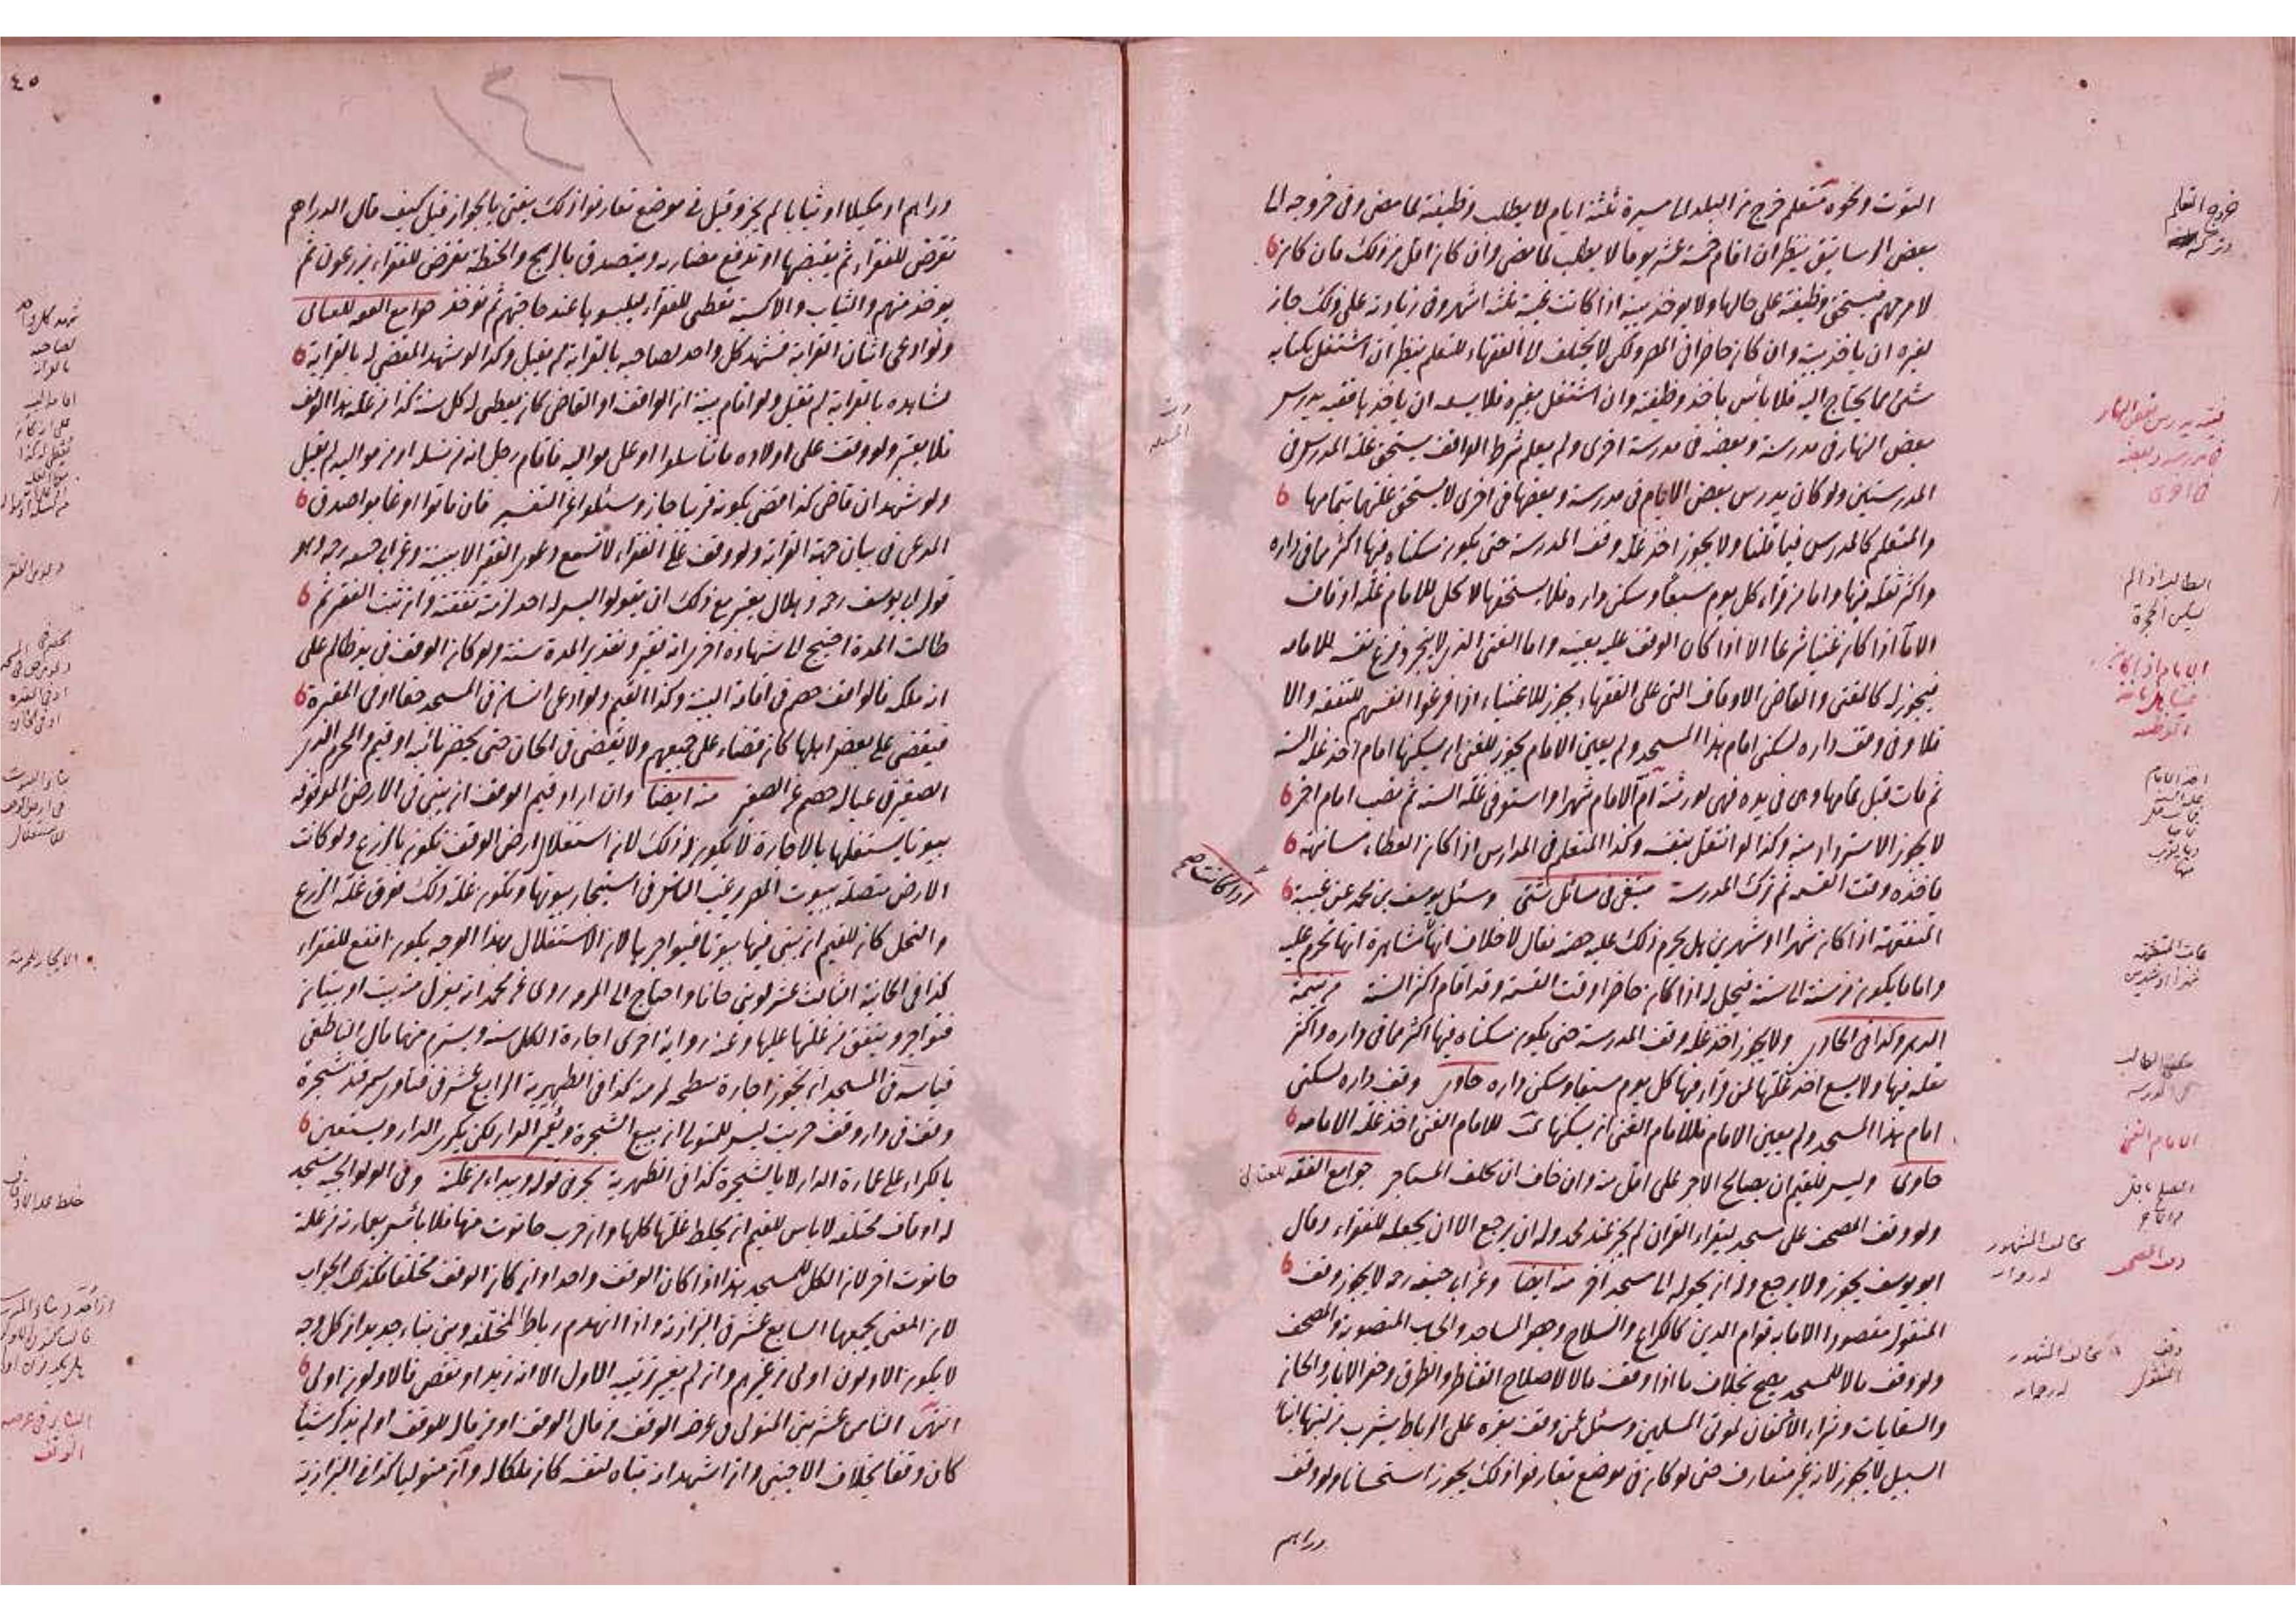 القوت ونحوه متعلم خرج من البلد الى مسيرة ثلثة ايام لا يطلب وظيفته لما مضى وفى خروجه الى
بعض الرساتيق ينظر ان اقام خمسة عشر يوما لا يطلب لما مضى وان كان اقل من ذلك فان كان
يستحق وظيفته على حالها ولا يوخذ بيته اذا كانت غيبته ثلثة اشهر وفى زيادته على ذلك جاز
لغيره ان ياخذ بيته وان كان حاضرا فى المصر ولكن لا يختلف الى الفقهاء للتعلم ينظر ان اشتغل بكتابة
شئ مما يحتاج اليه فلا بأس باخذ وظيفته وان اشتغل بغيره فلا يسعه ان ياخذها فقيه يدرس
بعض النهار فى مدرسة وبعضه فى مدرسة اخرى ولم يعلم شرط الواقف يستحق غلة المدرس فى
المدرستين ولو كان يدرس بعض الايام فى مدرسة وبعضها فى اخرى لا يستحق غلتهما بتمامها
والمتعلم كالمدرس فيما قلنا ولا يجوز اخذ غلة وقف المدرسة حتى يكون سكناه فيها اكثر مما فى داره
واكثر نقله فيها واما من قرأ كل يوم سبقا وسكن داره فلا يستحقها لا يحل للامام غلة اوقاف
الامام اذا كان غنيا شرعا الا اذا كان الوقف عليه بعينه واما الغنى الذى لا يتجر وفرغ نفسه للامامه
فيجوز له كالمفتى والقاضى الاوقاف التى على الفقهاء يجوز للاغنياء اذا فرغوا انفسهم للتفقه والا
فلا وفى وقف داره لسكنى امام هذا المسجد ولم يعين الامام يجوز للغنى ان يسكنها امام اخذ غلة السنة
ثم مات قبل تمامها وهى فى يده فهى لورثته امّ الامام شهرا واستوفى غلة السنة ثم نصب امام اخر
لا يجوز الاسترداد منه وكذا لو انتقل بنفسه وكذا المتعلم فى المدارس اذا كان العطاء مسانهة
فاخذه وقت القسمة ثم ترك المدرسة منتقى فى مسائل شتى وسئل يوسف بن محمد عن غيبة
المتفقهة اذا كان شهرا او شهرين هل يحرم ذلك عليه حقه فقال لا خلاف انها مشاهرة انها تحرم عليه
واما ما يكون من سنة الى سنة فيحل له اذا كان حاضرا وقت القسمة وقد اقام اكثر السنة من يتيمة
الدهر وكذا فى الحاوى ولا يجوز اخذ غلة وقف المدرسة حتى يكون سكناه فيها اكثر مما فى داره واكثر
نقله فيها ولا يسع اخذ غلتها لمن قرأ فيها كل يوم سبقا وسكن داره حاوى وقف داره لسكنى
امام هذا المسجد ولم يعين الامام فللامام الغنى ان يسكنها للامام الغنى اخذ غلة الامامه
حاوى وليس للقيم ان يصالح الاجر على اقل منه وان خاف ان يحلف المستاجر جوامع الفقه للعتابى
ولو وقف المصحف على مسجد ليقرأ القران لم يجز عند محمد وله ان يرجع الا ان يجعله للفقراء وقال
ابو يوسف يجوز ولا يرجع وله ان يحوله الى مسجد اخر منه ايضا وعن ابى حنيفه رحه لا يجوز وقف
المنقول مقصودا الا ما به قوام الدين كالكراع والسلاح وحصر المساجد والحباب المنصوبة والمصحف
ولو وقف مالا للمسجد يصح بخلاف ما اذا وقف مالا لاصلاح القناطر والطرق وحفر الابار والخان
والسقايات وشراء الاكفان لموتى المسلمين وسئل عن وقف بقره على الرباط يشرب من لبنها ابناء
السبيل لا يجوز لانه غير متعارف حتى لو كان فى موضع يتعارفوا ذلك يجوز استحسانا ولو وقف
دراهم
خروج المتعلم
فقيه يدرس بعض النهار
فى مدرسة وبعضه
فى اخرى
الامام الغنى
وقف المصحف
مخالف المشهور
وقف
المنقول
مخالف المشهور
٤٥
١٤٦
دراهم او مكيلا او ثيابا لم يجز وقيل فى موضع تعارفوا ذلك يفتى بالجواز قيل كيف قال الدراهم
تقرض للفقراء ثم يقبضها او تدفع مضاربه ويتصدق بالربح والحنطة تقرض للفقراء يزرعون ثم
يوخذ منهم والثياب والاكسة تعطى للفقراء ليلبسوها عند حاجتهم ثم توخذ جوامع الفقه للعتابى
ولو ادعى اثنان القرابة فشهد كل واحد لصاحبه بالقرابة لم يقبل وكذا لو شهد المقضى له بالقرابة
لشاهده بالقرابة لم تقبل ولو اقام بينة ان الواقف او القاضى كان يعطى له كل سنة كذا من غلة هذا الوقف
فلا يعتبر ولو وقف على اولاده ما تناسلوا او على مواليه فاقام رجل انه من نسله او من مواليه لم تقبل
ولو شهدا ان قاضى كذا قضى بكونه قريبا جاز وسئلوا عن التفسير فان ماتوا او غابوا صدق
المدعى فى بيان جهة القرابة ولو وقف على الفقراء لا تسمع دعوى الفقر الا ببينة وعن ابى حنيفه رحه وهو
قول ابى يوسف رحه وهلال يعتبر مع ذلك ان يقولوا ليس له احد لزمته نفقته وان ثبت الفقر ثم
طالت المدة احتيج الى شهادة اخرى انه فقير وتقدير المدة سنة ولو كان الوقف فى يد ظالم على
انه ملكه فالواقف خصم فى اقامة البينة وكذا القيم ولو ادعى انسان فى المسجد حقا او فى المقبرة
فيقضى على بعض اهلها كان قضاء على جميعهم ولا يقضى فى الخان حتى يحضر بانيه او قيم والمحرم الذى
الصغير فى عياله خصم عن الصغير منه ايضا وان اراد قيم الوقف ان يبنى فى الارض الموقوفه
بيوتا يستغلها بالاجارة لا يكون له ذلك لان استغلال ارض الوقف تكون بالزرع ولو كانت
الارض متصلة ببيوت المصر يرغب الناس فى استيجار بيوتها وتكون غلة ذلك فوق غلة الزرع
والنخل كان للقيم ان يبنى فيها بيوتا فيواجرها لان الاستغلال بهذا الوجه يكون انفع للفقراء
كذا فى الخانية الثالث عشر لو بنى خانا واحتاج الى المرمة روى عن محمد انه يعزل منه بيت او بيتان
فتواجر وينفق من غلتها عليها وعنه رواية اخرى اجارة الكل سنة ويسترم منها قال الناطفى
قياسه فى المسجد ان يجوز اجارة سطحه لمرمته كذا فى الظهيرية الرابع عشر فى فتاوى سمرقند شجرة
وقف فى دار وقف خربت ليس للمتولى ان يبيع الشجرة ويعمر الدار لكن يكرى الدار ويستعين
بالكراء على عمارة الدار لا بالشجرة كذا فى الظهرية وفى الولوالجيه مسجد
له اوقاف مختلفه لا باس للقيم ان يخلط غلتها كلها وان خرب حانوت منها فلا بأس بعمارته من غلة
حانوت اخر لان الكل للمسجد هذا اذا كان الوقف واحدا وان كان الوقف مختلفا فكذلك الجواب
لان المعنى يجمعها السابع عشر فى البزازية واذا انهدم رباط المختلفه وبنى بناء جديدا من كل وجه
لا يكون الاولون اولى من غيرهم وان لم يغير ترتيبه الاول الا انه زيد او نقص فالاولون اولى
انتهى الثامن عشر بنى المتولى فى عرصة الوقف من مال الوقف او من ماله للوقف او لم يذكر شيأ
كان وقفا بخلاف الاجنبى وان اشهد انه بناه لنفسه كان ملكا له وان متوليا كذا فى البزازية